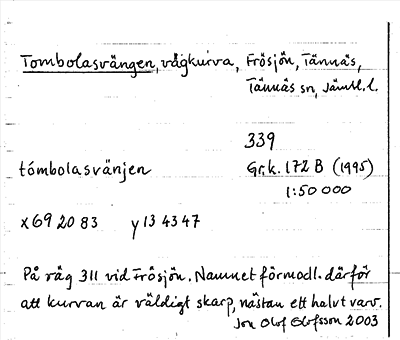 Tombolasvängen, vägkurva, Frösjön, Tännäs,
Tännäs sn, Jämtl. l.
339
tómbolasvänjen Gr.k. 172 B (1995)
1:50 000
x 69 20 83 y 13 43 47
På väg 311 vid Frösjön. Namnet förmodl. därför
att kurvan är väldigt skarp, nästan ett halvt varv.
Jon Olof Olofsson 2003